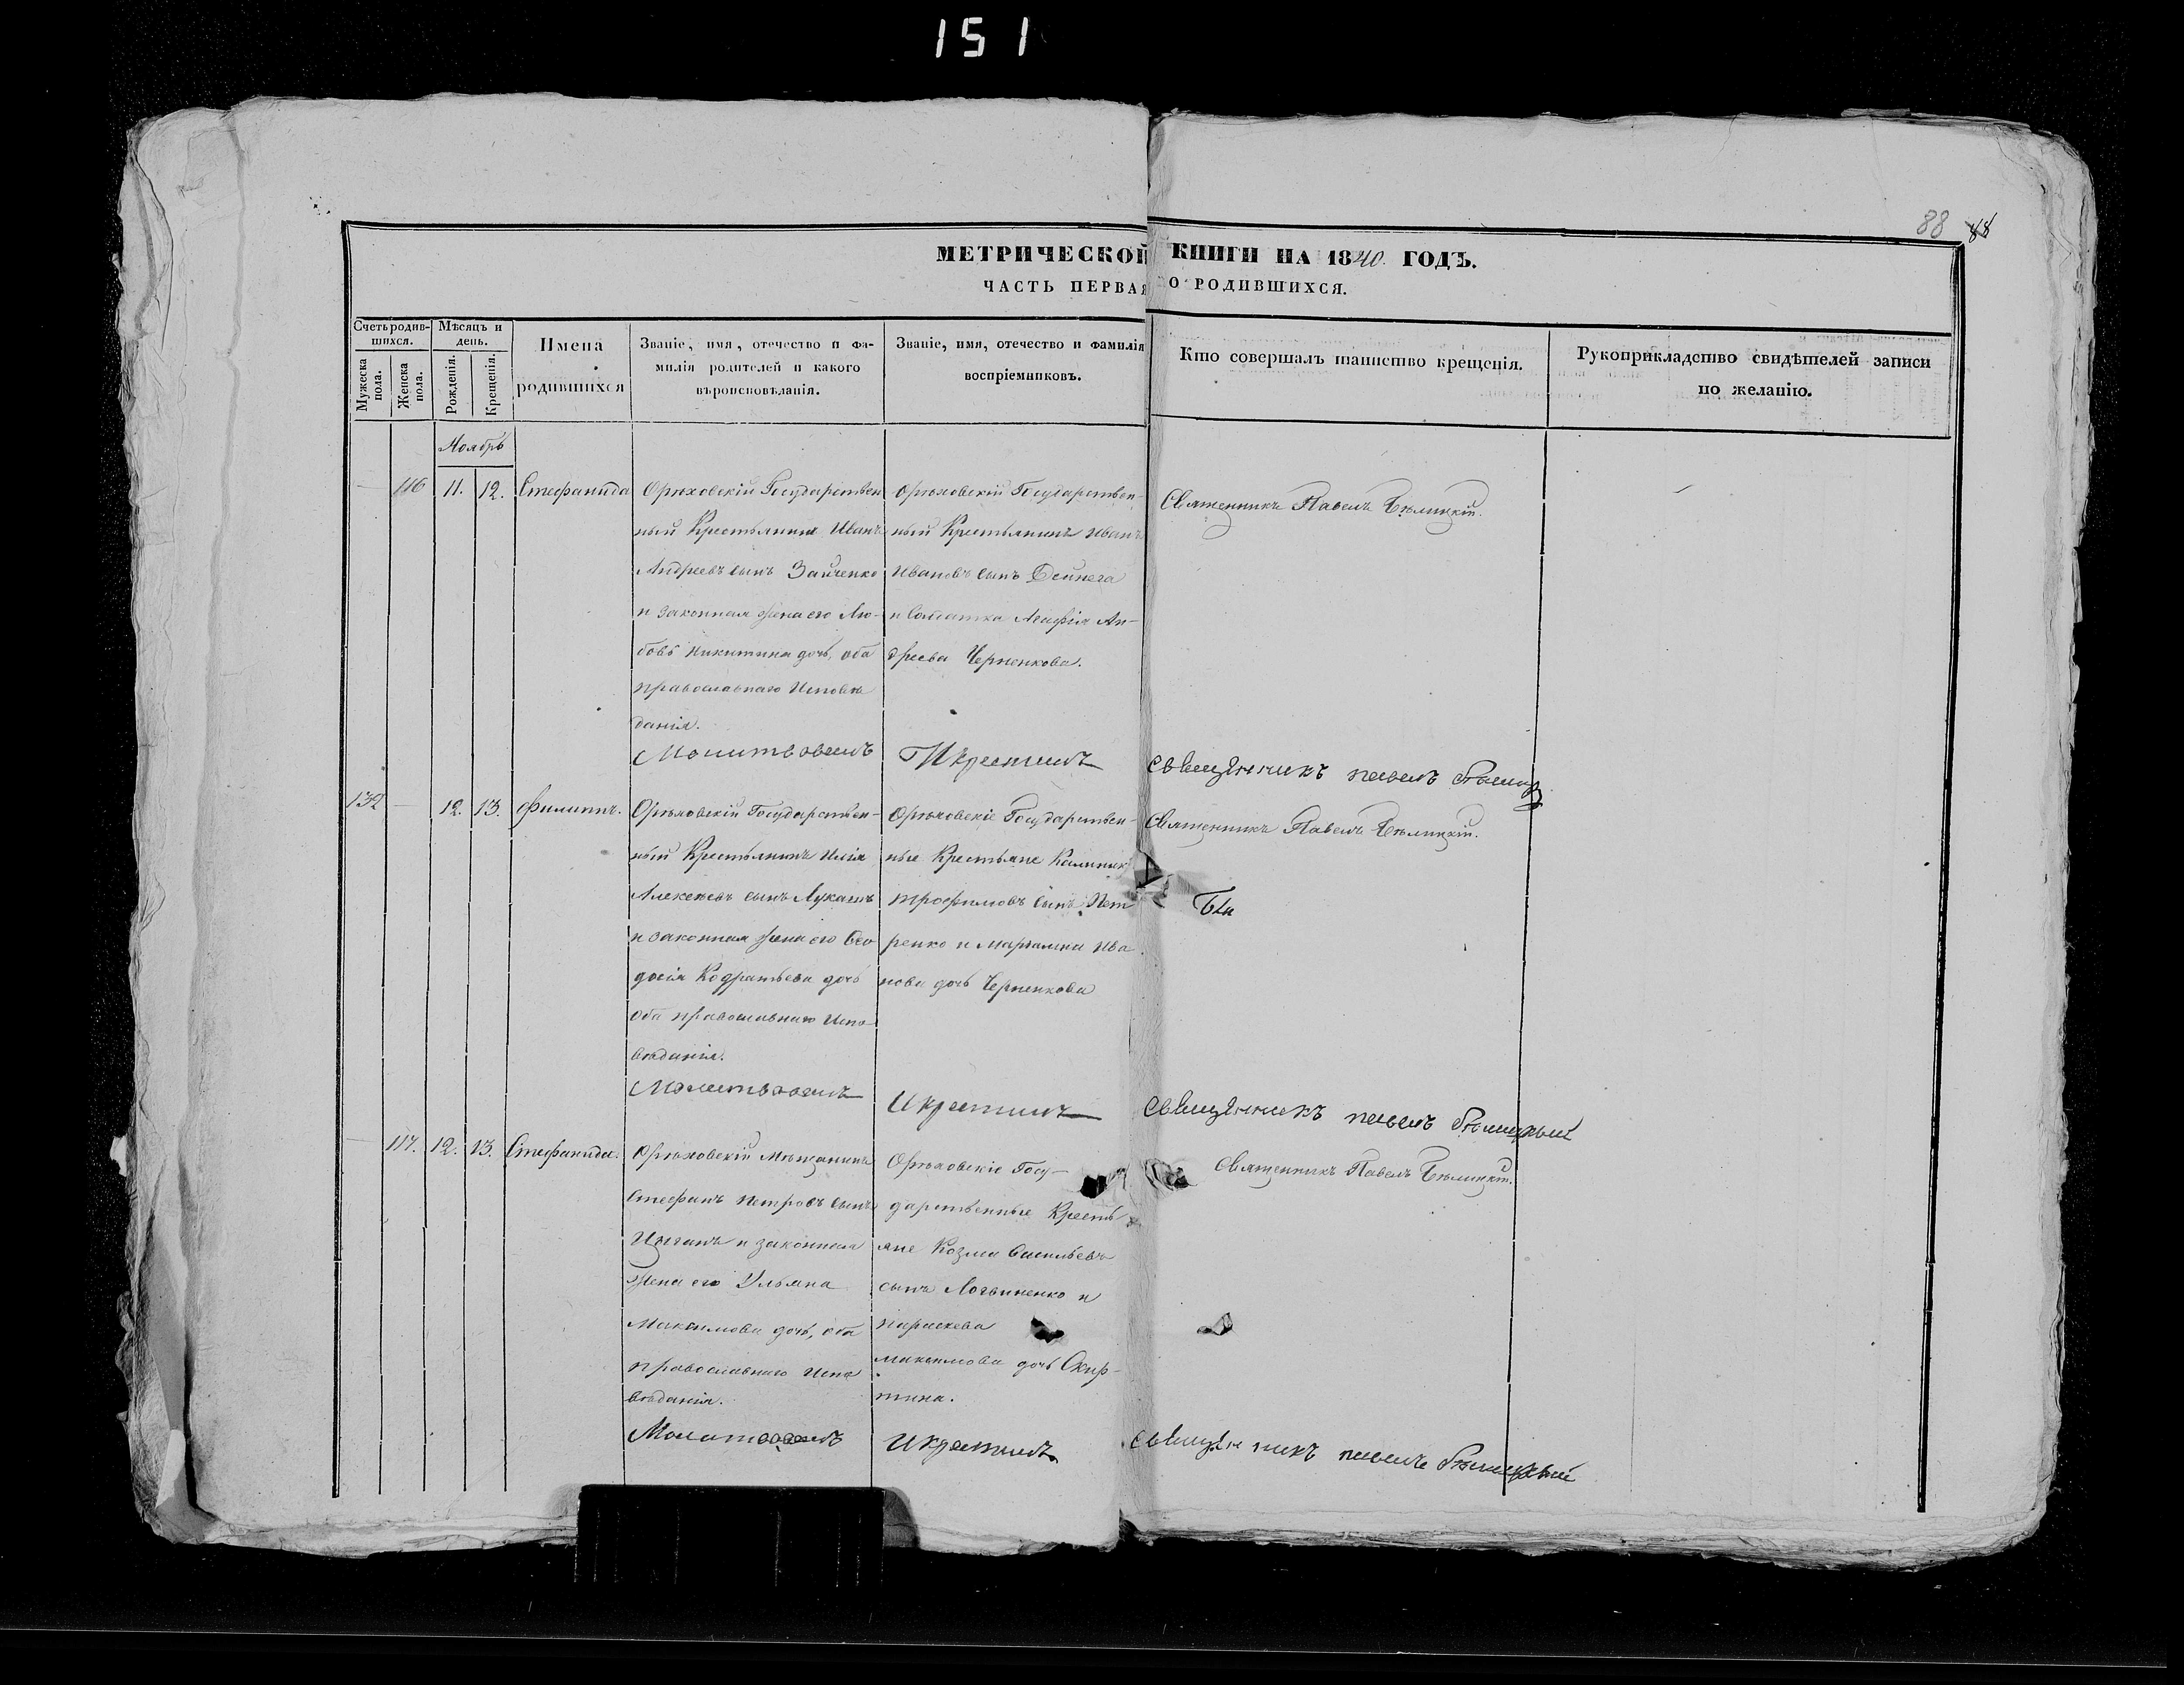 151
88 88
МЕТРИЧЕСКОЙ КНИГИ НА 1840 ГОДЪ.
ЧАСТЬ ПЕРВАЯ О РОДИВШИХСЯ.
Счетъ родив-
шихся.
Мужеска
пола.
Женска
пола.
Мѣсяцъ и
день.
Рожденія.
Крещенія.
Имена
родившихся
Званіе, имя, отечество и фа-
милія родителей и какого
вѣроисповѣданія.
Званіе, имя, отечество и фамилія
воспріемниковъ.
Кто совершалъ таинство крещенія.
Рукоприкладство свидѣтелей записи
по желанію.
Ноябрь
116 11. 12. Стефанида
Орѣховскій Государствен
ный Крестьянинъ Иванъ
Андреевъ сынъ Зайченко
и законная жена его Лю-
бовь Никитина дочь, оба
православнаго Исповѣ
данія.
Орѣховскій Государствен-
ный Крестьянинъ Иванъ
Ивановъ сынъ Дейнега
и Солдатка Агафія Ан-
дреева Черненкова.
Священникъ Павелъ Бѣлицкій.
Молитвовалъ
И крестилъ
священникъ павелъ
132 12. 13. Филиппъ.
Орѣховскій Государствен-
ный Крестьянинъ Илія
Алексѣевъ сынъ Лукашъ
и законная жена его Ѳео
досія Кодратьева дочь
оба православнаго Испо
вѣданія.
Орѣховскіе Государствен-
ные Крестьяне Калиник
трофимовъ сынъ Пет
ренко и Марьамна Ива
нова дочь Черненкова
Священникъ Павелъ Бѣлицкій.
Молитвовалъ
И крестилъ
священникъ павелъ бѣлицкый
117. 12. 13. Стефанида.
Орѣховскій Мѣщанинъ
Стефанъ Петровъ сынъ
Цыганъ и законная
жена его Ульяна
Максимова дочь, оба
православнаго Испо
вѣданія.
Орѣховскіе Госу-
дарственные Кресть
яне Козма Васильевъ
сынъ Логвиненко и
Параскева
максимова дочь Скир-
тина.
Священникъ Павелъ Бѣлицкій.
Молитвовалъ
И крестилъ
священникъ павелъ бѣлицкый